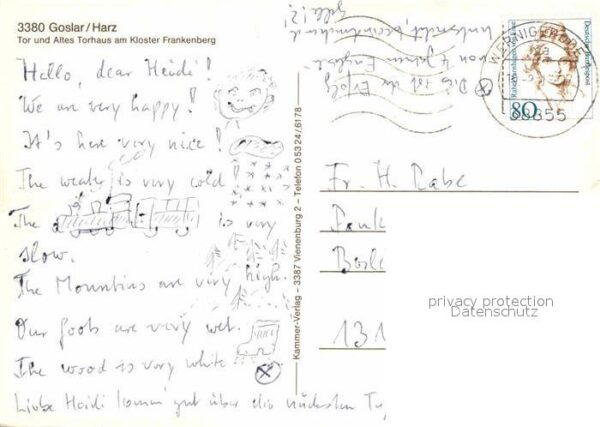 3380 Goslar/Harz
Tor und Altes Torhaus am Kloster Frankenberg
Hello, dear Heidi!
We are very happy!
It's here very nice!
The weather is very cold!
The is very
slow.
The Mountins are very high.
Our foots are very wet.
The wood is very white
Liebe Heidi komm' gut über die nächsten
Kammer-Verlag - 3387 Vienenburg 2 - Telefon 05324/6178
Das ist der Erfolg
von 4 Jahren Englisch-
unterricht, beeindruckend
gelle!?
WERNIGERODE
38855
80
Deutsche Bundespost
Fr. H. Rabe
131
privacy protection
Datenschutz